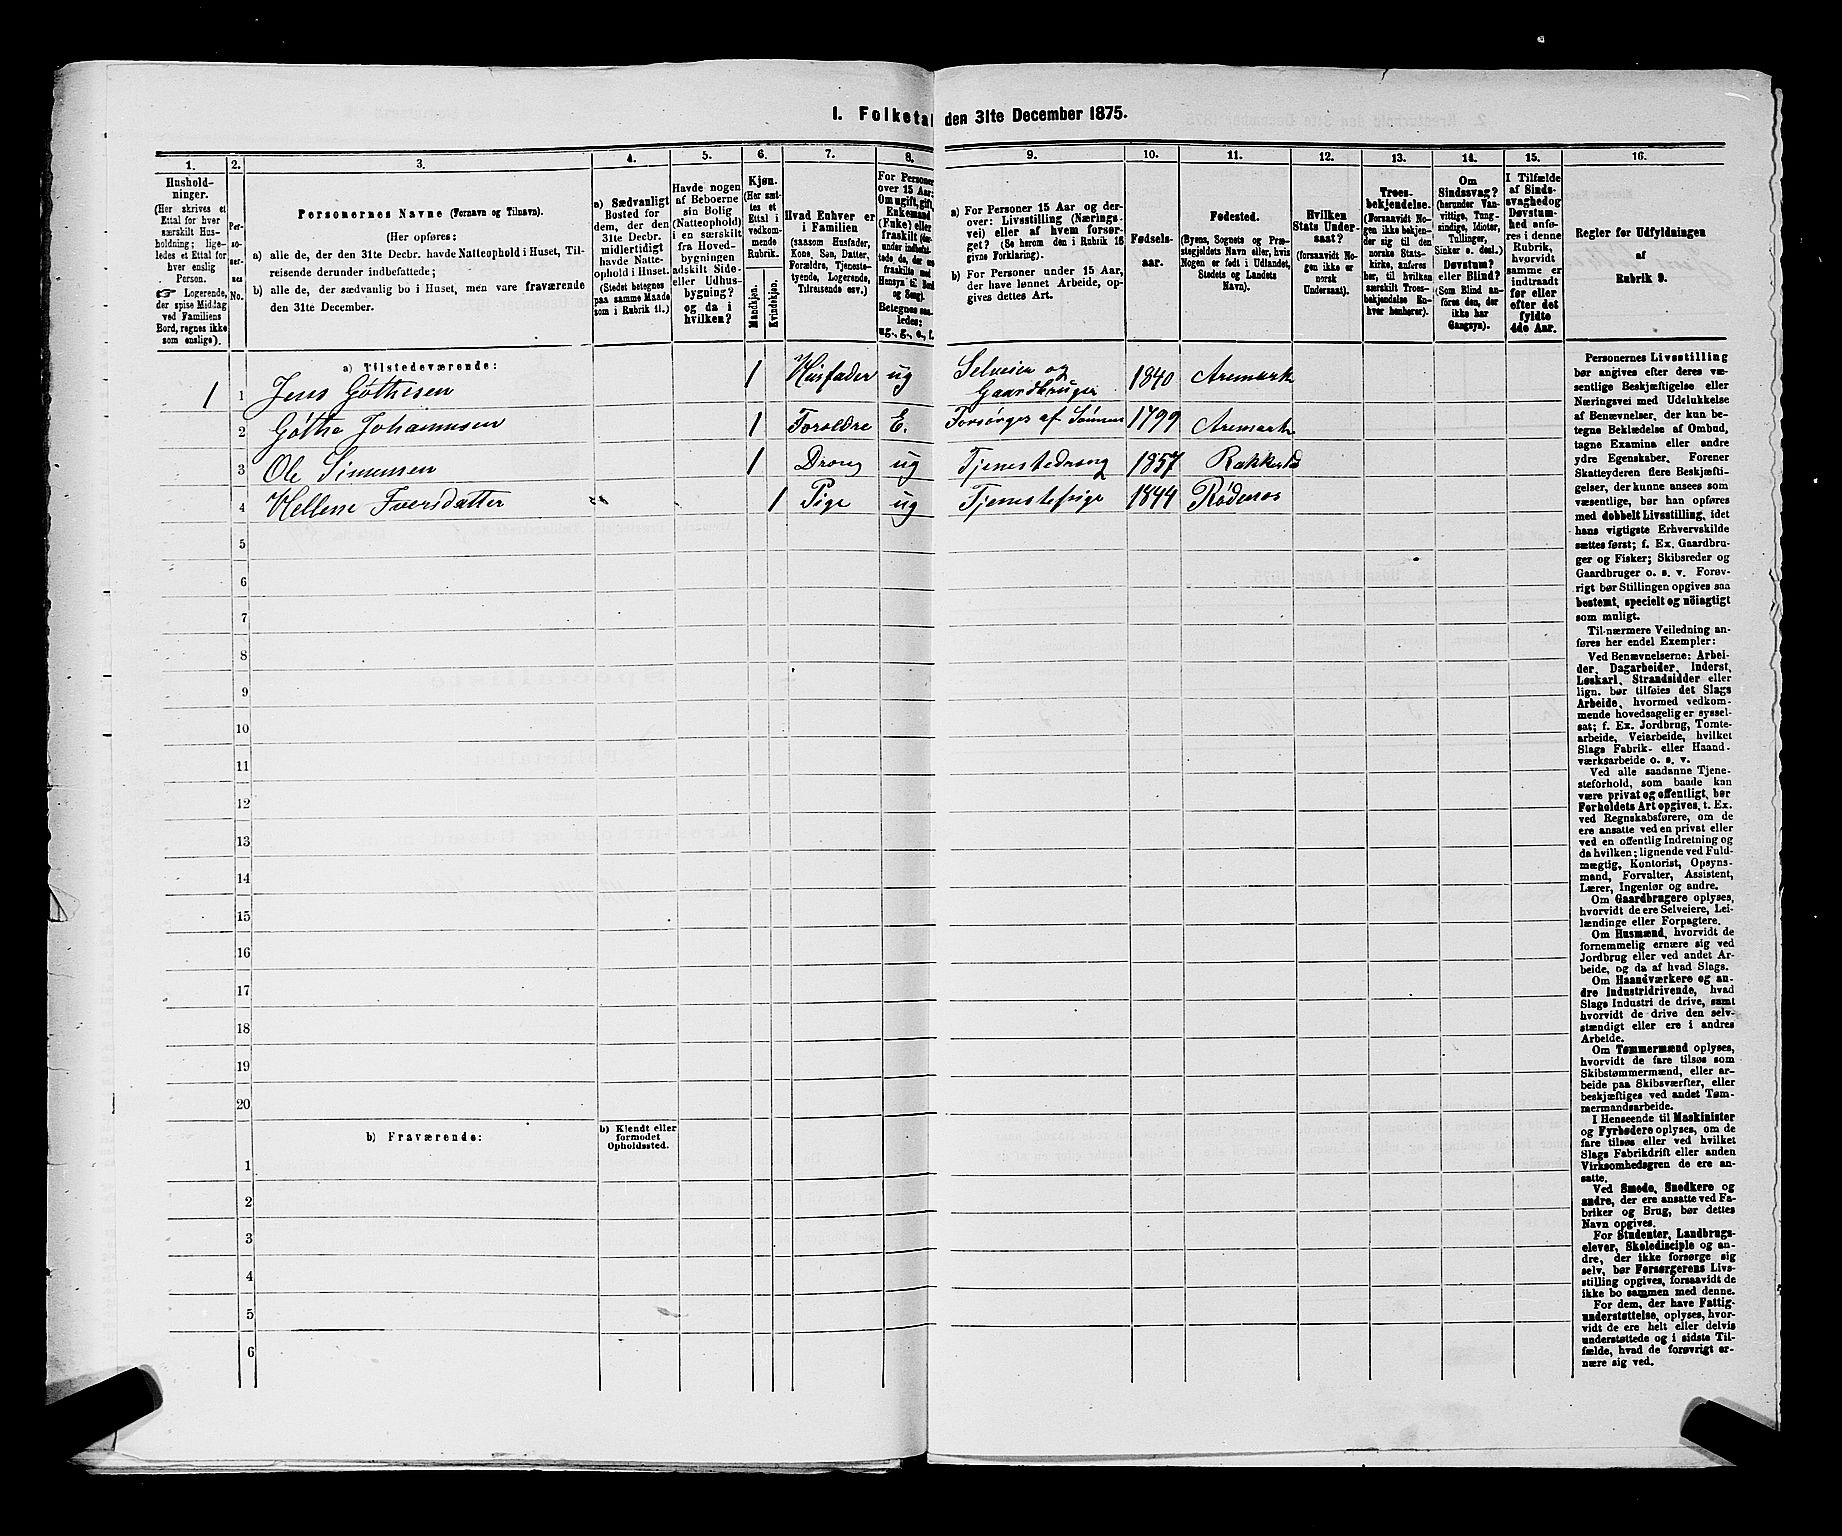 I. Folketal den 31te December 1875.
1. 2. 3. 4. 5. 6. 7. 8. 9. 10. 11. 12. 13. 14. 15. 16.
Hushold-
ninger.
(Her skrives et
Ettal for hver
særskilt Hus-
holdning; lige-
ledes et Ettal for
hver enslig
Person.
☞ Logerende,
der spise Middag
ved Familiens
Bord, regnes ikke
som enslige).
Per-
so-
ner-
nes
No.
Personernes Navne (Fornavn og Tilnavn).
(Her opføres:
a) alle de, der den 31te Decbr. havde Natteophold i Huset, Til-
reisende derunder indbefattede;
b) alle de, der sædvanlig bo i Huset, men vare fraværende
den 31te December.
a) Sædvanligt
Bosted for
dem, der den
31te Decbr.
midlertidigt
havde Natte-
ophold i Huset.
(Stedet betegnes
paa samme Maade
som i Rubrik 11.)
Havde nogen
af Beboerne
sin Bolig
(Natteophold)
i en særskilt
fra Hoved-
bygningen
adskilt Side-
eller Udhus-
bygning?
og da i
hvilken?
Kjøn.
(Her sæt-
tes et
Ettal i
vedkom-
mende
Rubrik.
Mandkjøn.
Kvindekjøn.
Hvad Enhver er
i Familien
(saasom Husfader,
Kone, Søn, Datter,
Forældre, Tjeneste-
tyende, Logerende,
Tilreisende osv.)
For Personer
over 15 Aar:
Om ugift, gift,
Enkemand
(Enke) eller
fraskilt
Betegnes saa-
ledes:
ug., g., e., f.
a) For Personer 15 Aar og der-
over: Livsstilling (Nærings-
vei) eller af hvem forsør-
get? (Se herom den i Rubrik 16
givne Forklaring).
b) For Personer under 15 Aar,
der have lønnet Arbeide, op-
gives dettes Art.
Fødsels-
aar.
Fødested.
(Byens, Sognets og Præ-
stegjeldets Navn eller, hvis
Nogen er født i Udlandet,
Stedets og Landets
Navn).
Hvilken
Stats Under-
saat?
(forsaavidt No-
gen ikke er
norsk
Undersaat).
Troes-
bekjendelse.
(Forsaavidt No-
gen ikke bekjen-
der sig til den
norske Stats-
kirke, anføres
her, til hvilken
særskilt Troes-
bekjendelse En-
hver henhører).
Om
Sindssvag?
(herunder Van-
vittige, Tung-
sindige, Idioter,
Tullinger,
Sinker o. desl.)
Døvstum?
eller Blind?
(Som Blind an-
føres den, der
ikke har
Gangsyn).
I Tilfælde
af Sinds-
svaghed og
Døvstum-
hed anfø-
res i denne
Rubrik,
hvorvidt
samme er
indtraadt
før eller
efter det
fyldte
4de Aar.
Regler for Udfyldningen
af
Rubrik 9.
a) Tilstedeværende:
1 1 Jens Gøthesen 1 Husfader ug Selveier og Gaardbruger 1840 Aremark
2 Gøthe Johannesen 1 Foroldre E. Forsørges af Sønnen 1799 Aremark
3 Ole Simensen 1 Dreng ug Tjenestedreng 1857 Rakkestd
4 Hellene Iversdatter 1 Pige ug Tjenestepige 1844 Rødenes
5
6
7
8
9
10
11
12
13
14
15
16
17
18
19
20
b) Fraværende:
b) Kjendt eller
formodet
Opholdssted.
1
2
3
4
5
6
Personernes Livsstilling
bør angives efter deres væ-
sentlige Beskjæftigelse eller
Næringsvei med Udelukkelse
af Benævnelser, der kun be-
tegne Beklædelse af Ombud,
tagne Examina eller andre
ydre Egenskaber. Forener
Skatteyderen flere Beskjæfti-
gelser, der kunne ansees som
væsentlige, bør han opføres
med dobbelt Livsstilling, idet
hans vigtigste Erhvervskilde
sættes først; f. Ex. Gaardbru-
ger og Fisker; Skibsreder og
Gaardbruger o. s. v. Forøv-
rigt bør Stillingen opgives saa
bestemt, specielt og nøiagtigt
som muligt.
Til nærmere Veiledning an-
føres her endel Exempler:
Ved Benævnelserne: Arbei-
der, Dagarbeider, Inderst,
Løskarl, Strandsidder eller
lign. bør tilføies det Slags
Arbeide, hvormed vedkom-
mende hovedsagelig er syssel-
sat; f. Ex. Jordbrug, Tomte-
arbeide, Veiarbeide, hvilket
Slags Fabrik- eller Haand-
værksarbeide o. s. v.
Ved alle saadanne Tjene-
steforhold, som baade kan
være privat og offentligt, bør
Forholdets Art opgives, t. Ex.
ved Regnskabsførere, om de
ere ansatte ved en privat eller
ved en offentlig Indretning og
da hvilken; lignende ved Fuld-
mægtig, Kontorist, Opsyns-
mand, Forvalter, Assistent,
Lærer, Ingeniør og andre.
Om Gaardbrugere oplyses,
hvorvidt de ere Selveiere, Lei-
lændinge eller Forpagtere.
Om Husmænd, hvorvidt de
fornemmelig ernære sig ved
Jordbrug eller ved andet Ar-
beide, og da af hvad Slags.
Om Haandværkere og an-
dre Industridrivende, hvad
Slags Industri de drive, samt
hvorvidt de drive den selv-
stændigt eller ere i andres
Arbeide.
Om Tømmermænd oplyses,
hvorvidt de fare tilsøs som
Skibstømmermænd, eller ar-
beide paa Skibsværfter, eller
beskjæftiges ved andet Tøm-
mermandsarbeide.
I Henseende til Maskinister
og Fyrbødere oplyses, om de
fare tilsøs eller ved hvilket
Slags Fabrikdrift eller anden
Virksomhedsgren de ere an-
satte.
Ved Smede, Snedkere og
andre, der ere ansatte ved Fa-
briker og Brug, bør dettes
Navn opgives.
For Studenter, Landbrugs-
elever, Skoledisciple og an-
dre, der ikke forsørge sig
selv, bør Forsørgerens Livs-
stilling opgives, forsaavidt de
ikke bo sammen med denne.
For dem, der have Fattig-
understøttelse, oplyses, hvor-
vidt de ere helt eller delvis
understøttede og i sidste Til-
fælde, hvad de forøvrigt er-
nære sig ved.